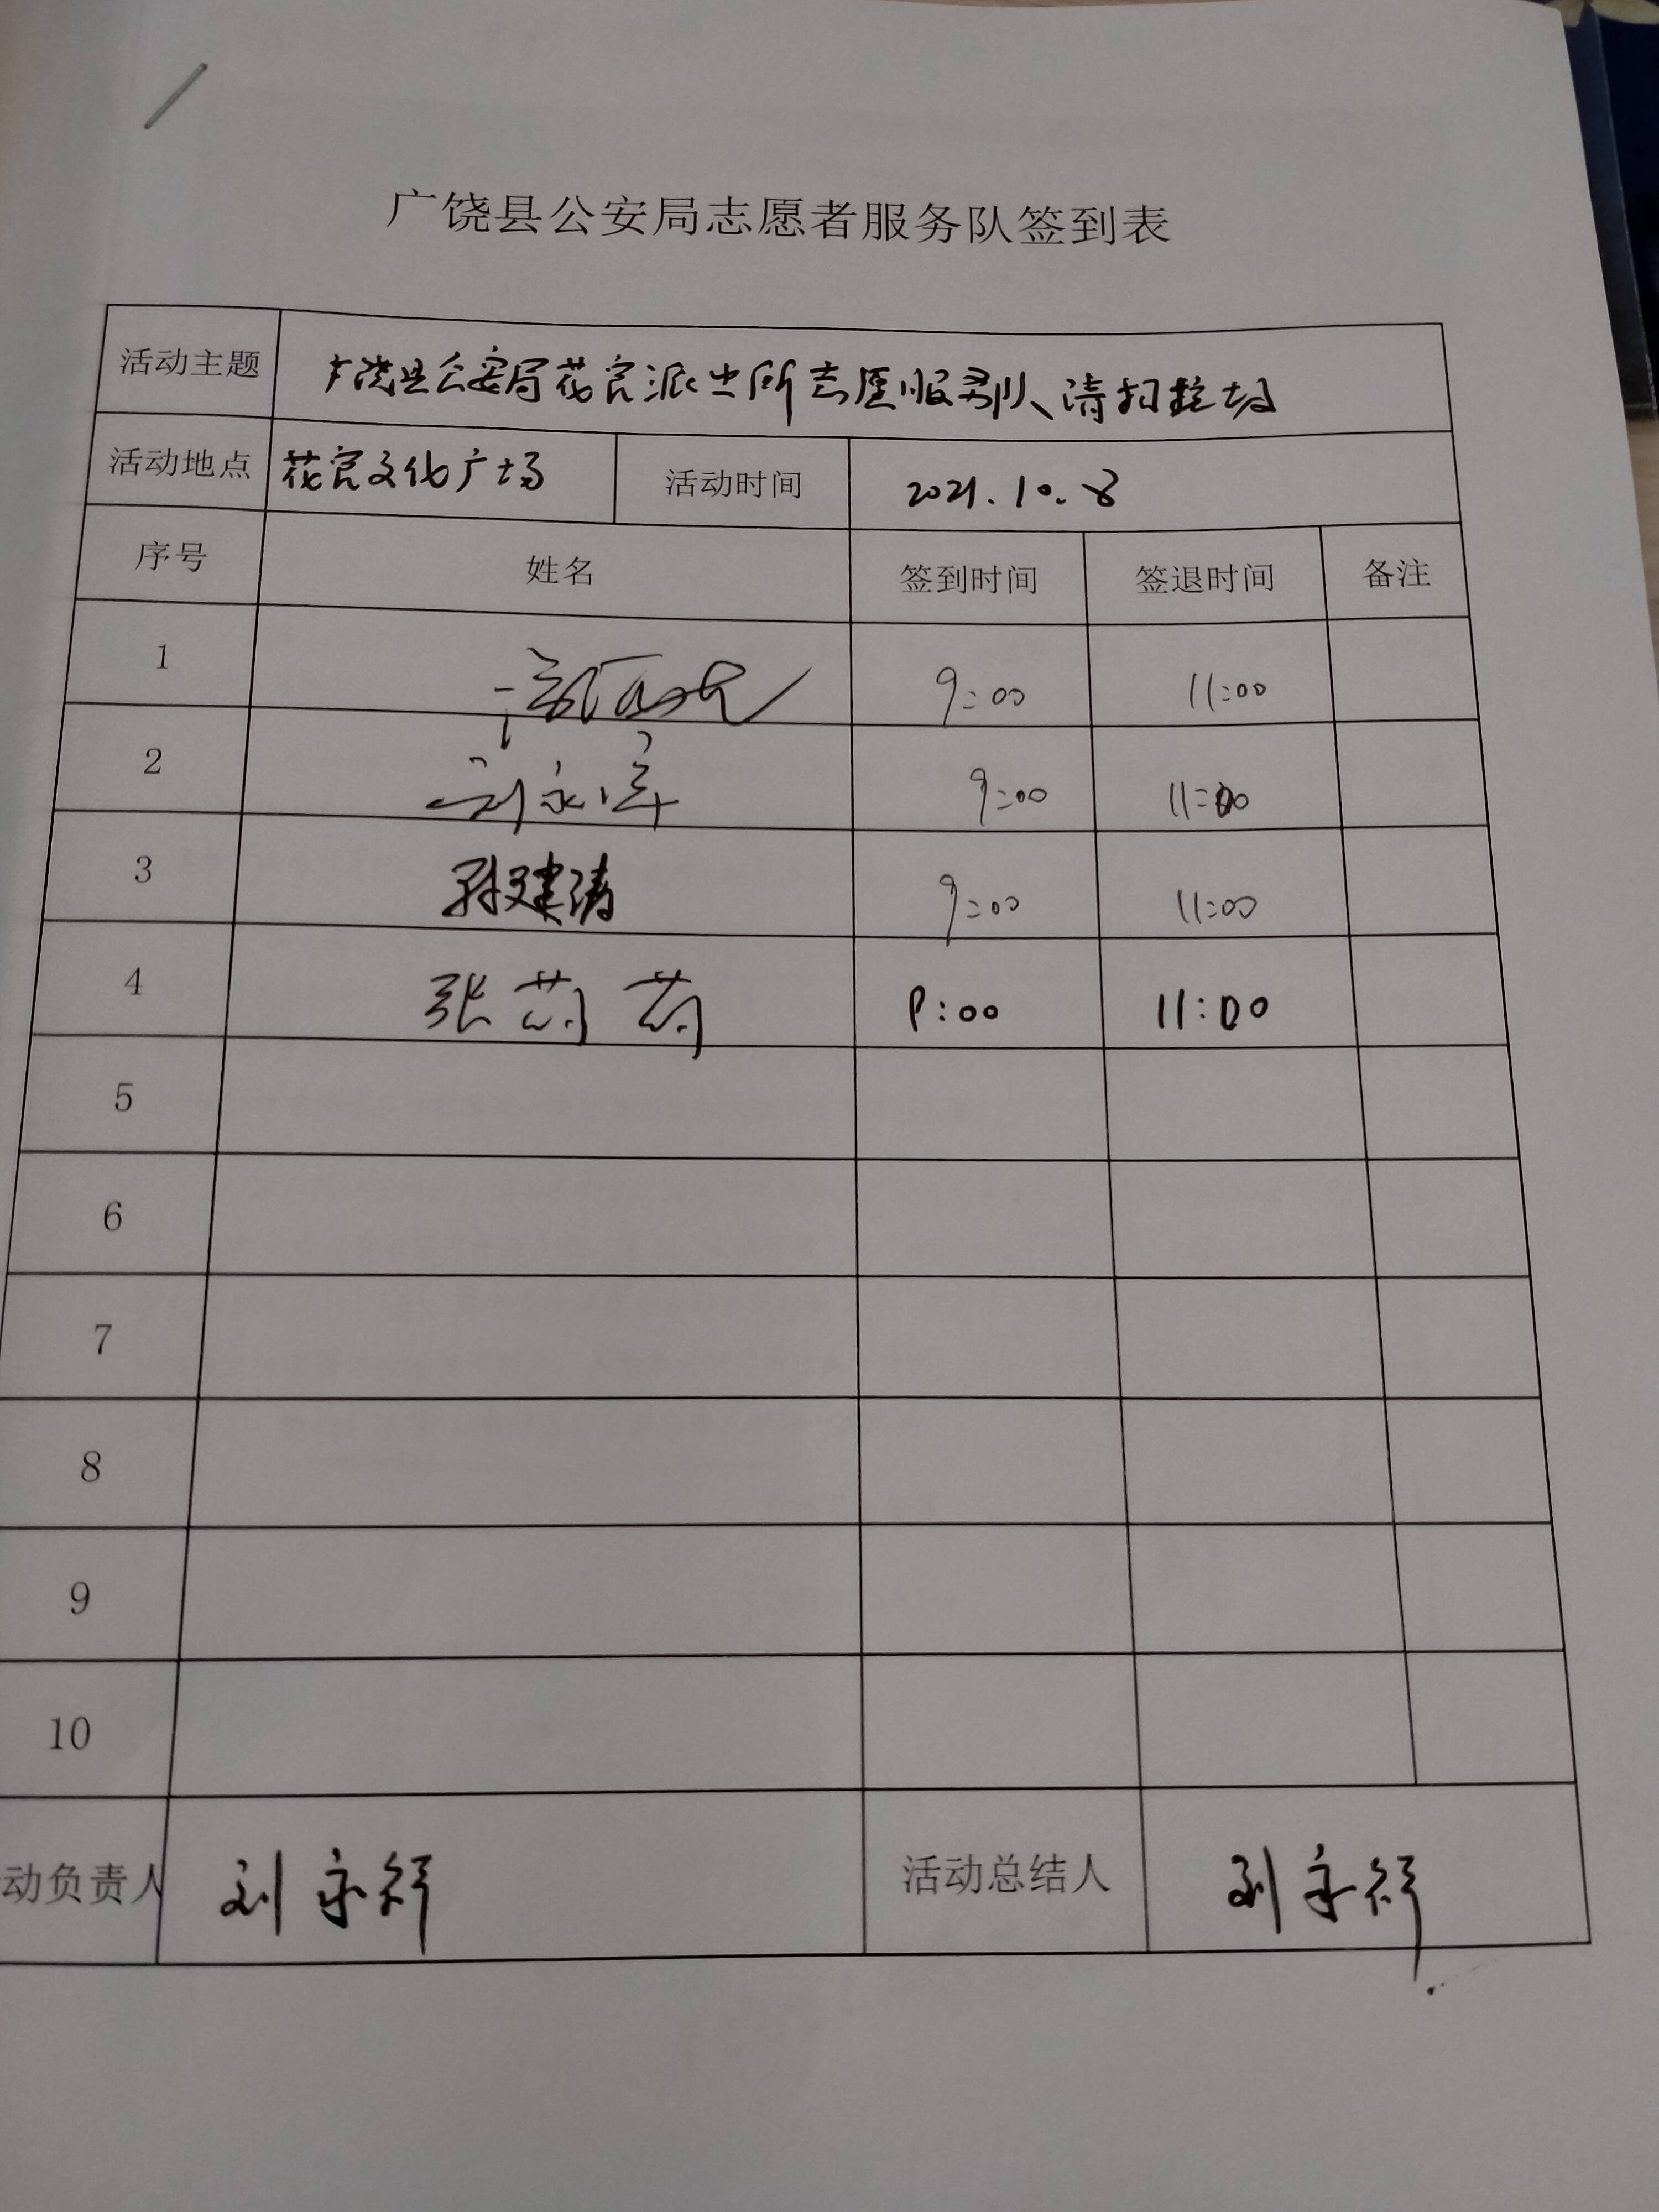 广饶县公安局志愿者服务队签到表
活动主题 广饶县公安局花官派出所志愿服务队清扫垃圾
活动地点 花官文化广场 活动时间 2021.10.8
序号 姓名 签到时间 签退时间 备注
1 9:00 11:00
2 刘永军 9:00 11:00
3 孙建涛 9:00 11:00
4 张茼茼 9:00 11:00
5
6
7
8
9
10
动负责人 刘永 活动总结人 刘永